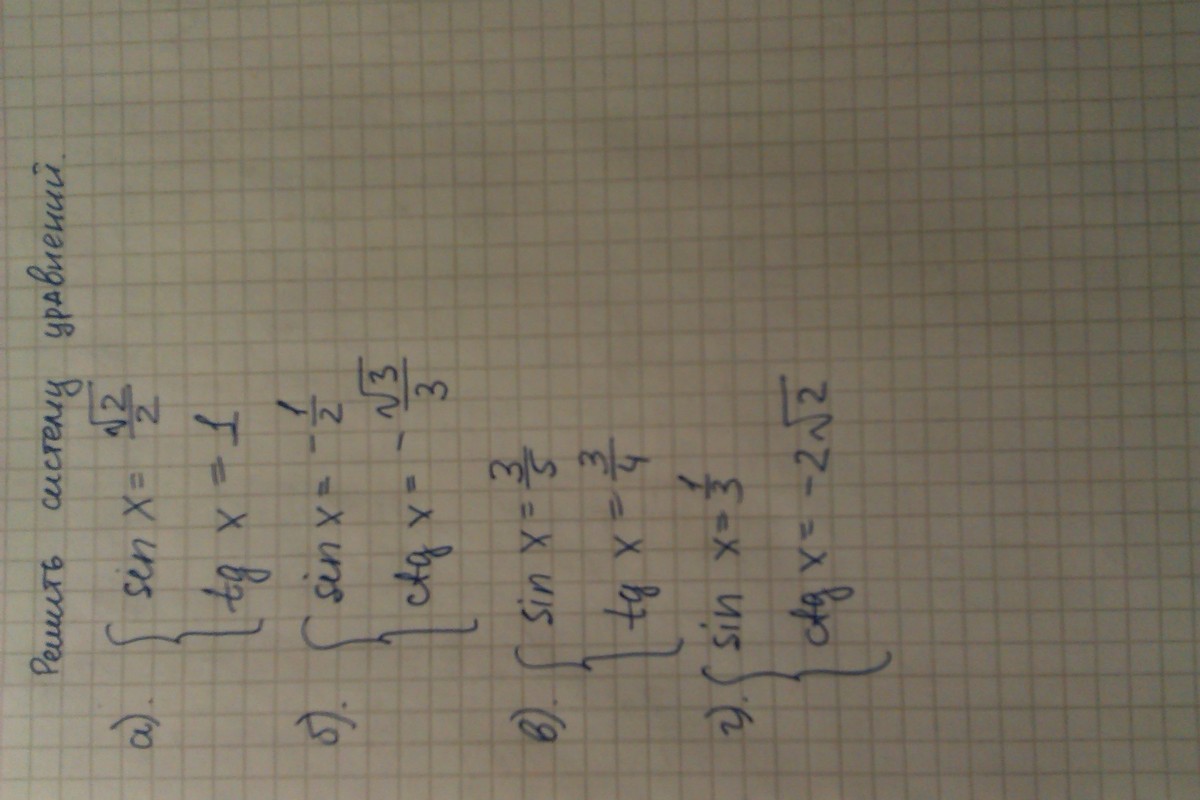 Решить систему уравнений.
а). { sin x = √2/2
tg x = 1
б). { sin x = -1/2
ctg x = -√3/3
в). { sin x = 3/5
tg x = 3/4
г). { sin x = 1/3
ctg x = -2√2